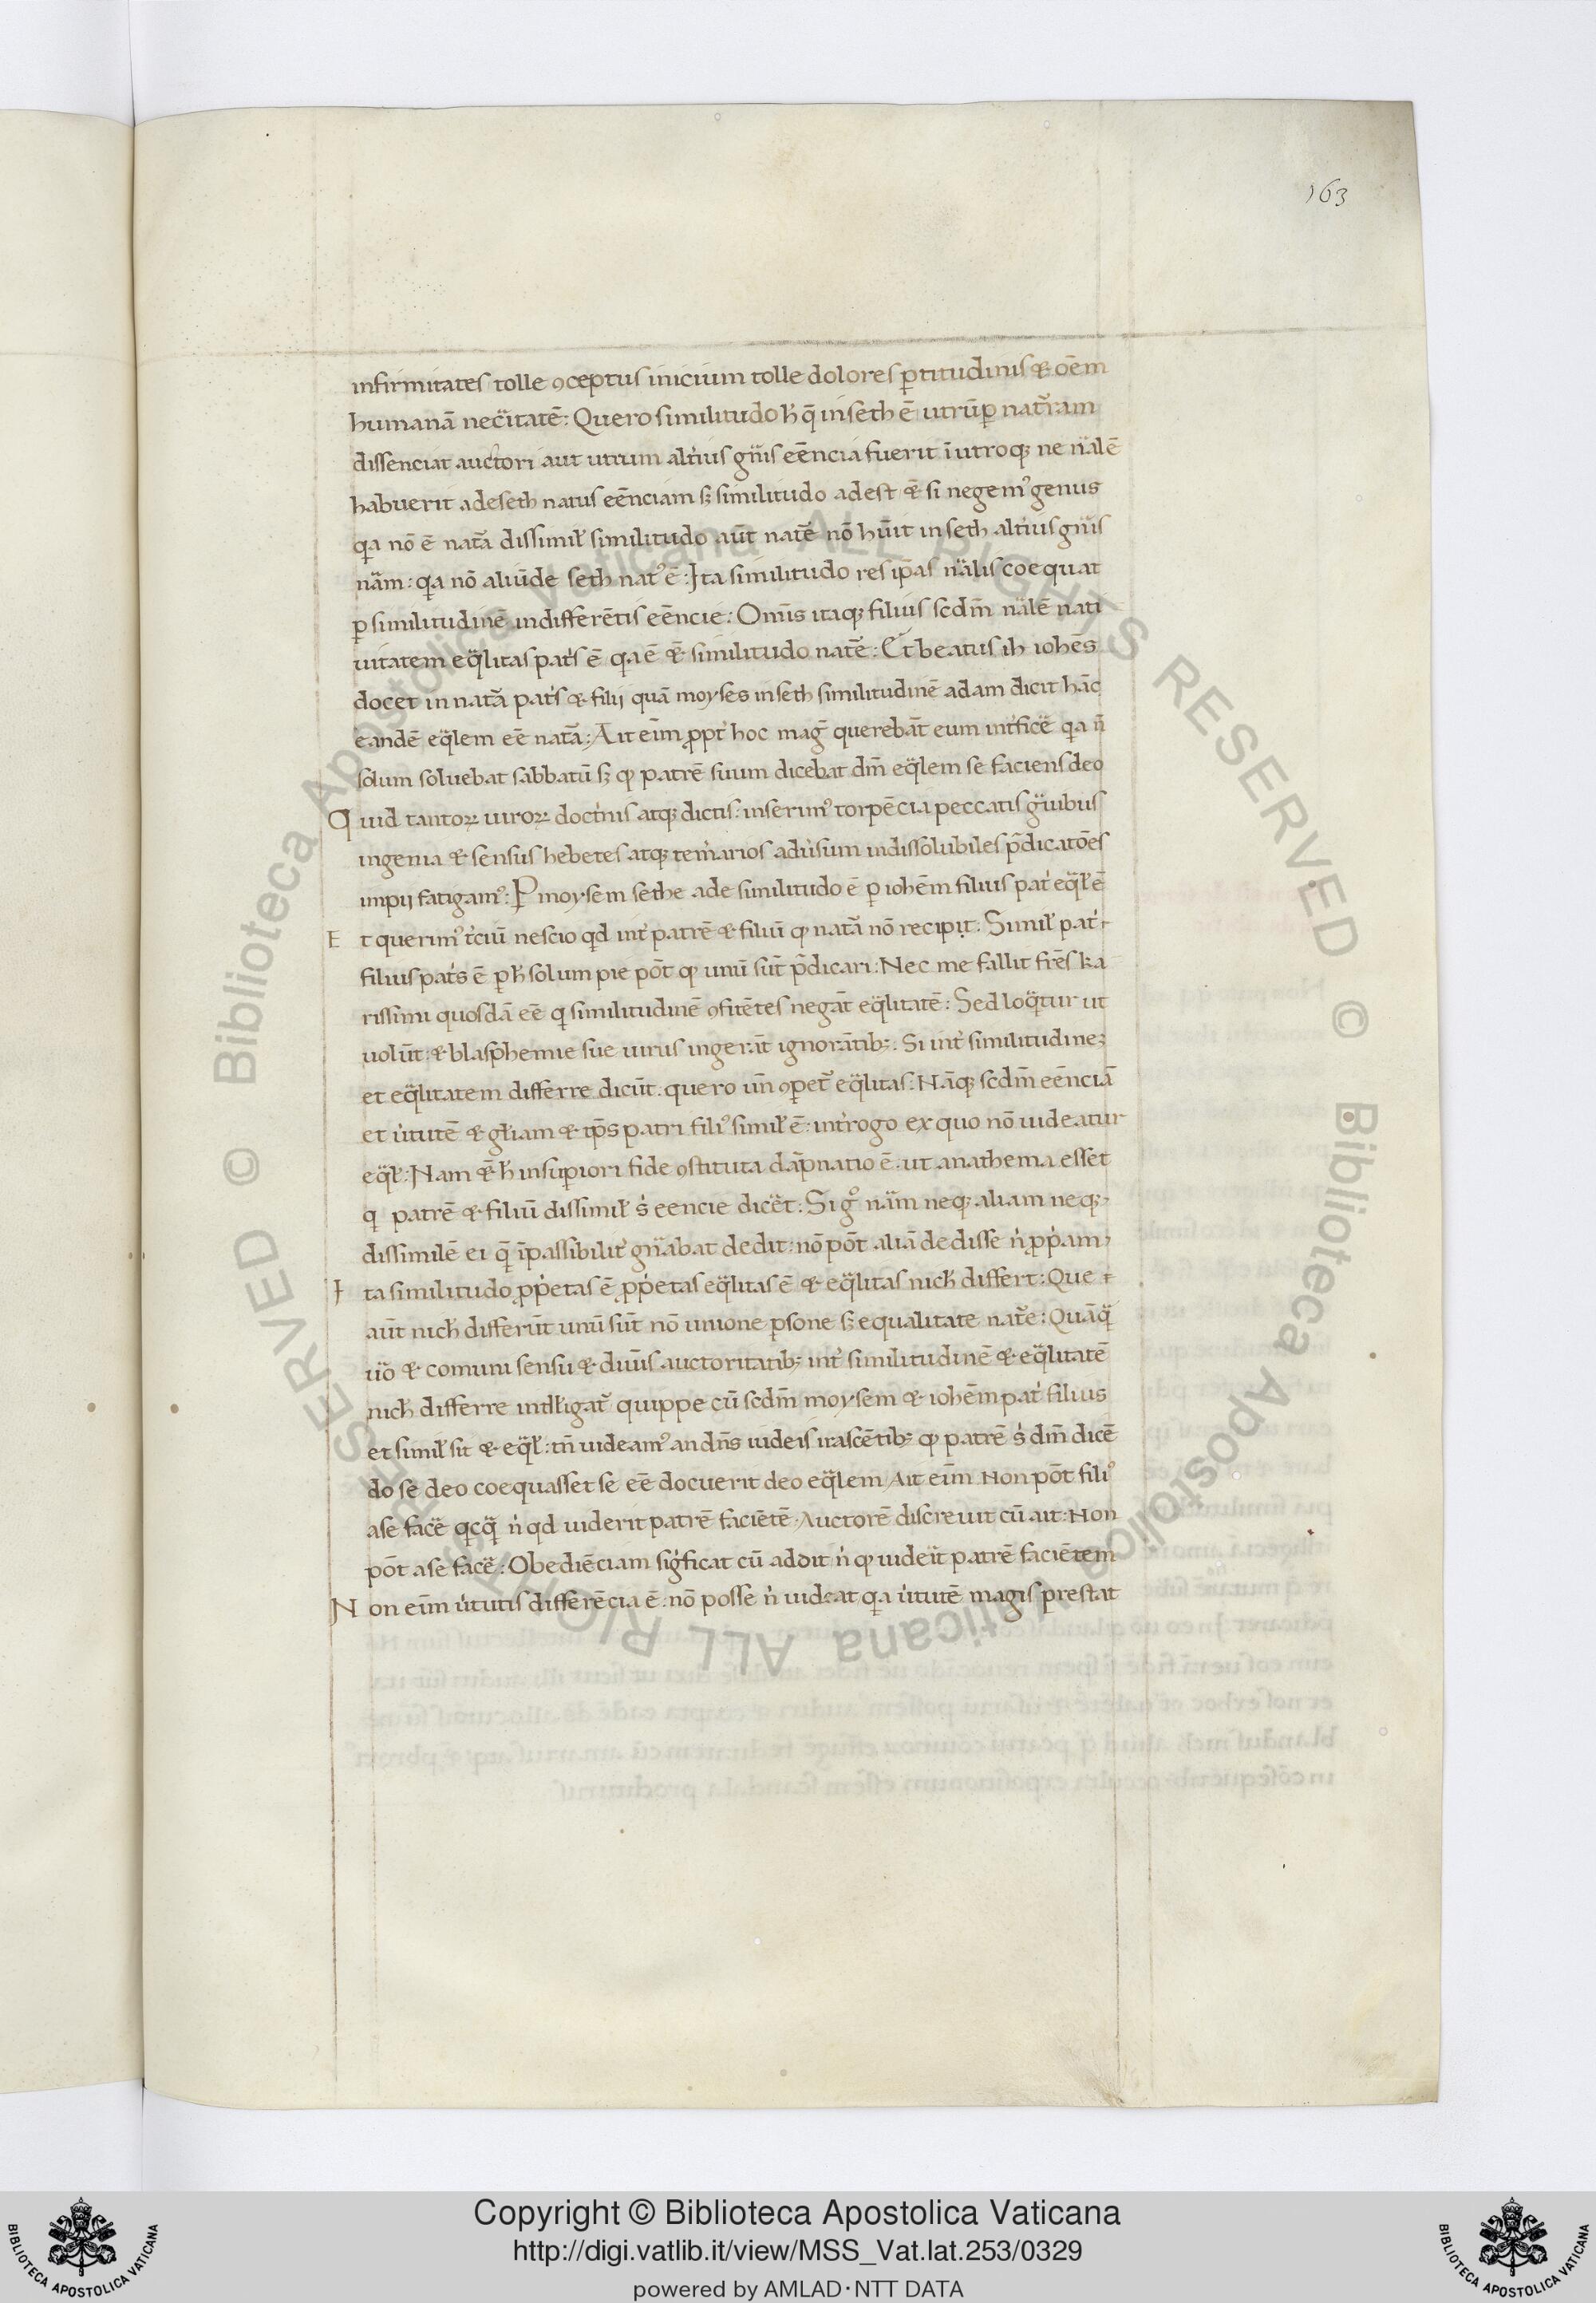 163
infirmitates tolle ꝯceptus inicium tolle dolores ꝑtitudinis & oēm
humanā nec̄itatē: Quero similitudo h̓ q̄ in seth ē utrū ꝑ nat̄ram
dissenciat auctori aut utrum alt̓ius gn̄is eēncia fuerit ī utroqꝫ ne n̄alē
habuerit ade seth natus eēnciam sꝫ similitudo adest & si negemꝰ genus
qa nō ē nat̄a dissimil̓ similitudo aūt nat̄e nō hūit in seth alt̓ius gn̄is
nām: qa nō aliūde seth natꝰ ē: Ita similitudo res ip̄as n̄alis coequat
ꝑ similitudinē indifferētis eēncie: Om̄s itaqꝫ filius scdm̄ n̄alē nati
uitatem eq̄litas pat̓s ē qa ē & similitudo nat̄e: Et beatus ih iohēs
docet in nat̄a pat̓s & filij quā moyses in seth similitudinē adam dicit hāc
eandē eq̄lem eē nat̄a: Ait eīm ꝓpt̓ hoc maḡ querebāt eum int̓fic̄e qa n̄
solum soluebat sabbatū sꝫ qͥ patrē suum dicebat dm̄ eq̄lem se faciens deo
Quid tantoꝝ uiroꝝ doct̓nis atqꝫ dictis: inserimꝰ torpēcia peccatis g̓uibus
ingenia & sensus hebetes atqꝫ tem̓arios adu̓sum indissolubiles p̄dicatōes
impij fatigamꝰ: P moysem sethe ade similitudo ē ꝑ iohēm filius pat̓ eq̄l̓ ē
Et querimꝰ t̓ciū nescio qd int̓ patrē & filiū qͥ nat̄a nō recipit: Simil̓ pat̓
filius pat̓s ē ꝑ h̓ solum pie pōt qͥ unū sūt p̄dicari: Nec me fallit frēs ka
rissimi quosdā eē qͥ similitudinē ꝯfitētes negāt eq̄litatē: Sed loq̄tur ut
uolūt: & blasphemie sue uirus ingerāt ignorātibꝫ. Si int̓ similitudineꝫ
et eq̄litatem differre dicūt. quero un̄ ꝯꝑet̄ eq̄litas: Nāqꝫ scdm̄ eēnciā
et u̓tutē & gl̓iam & tp̄s patri filiꝰ simil̓ ē: int̓rogo ex quo nō uideatur
eq̄l̓: Nam & h̓ in suꝑiori fide ꝯstituta dāpnatio ē ut anathema esset
qͥ patrē & filiū dissimil̓ s̓ eencie dic̄et: Si gͦ nām neqꝫ aliam neqꝫ
dissimilē ei q̄ īpassibilit̓ gn̄abat dedit: nō pōt aliā dedisse n̓ ꝓp̓am
Ita similitudo ꝓp̓etas ē ꝓp̓etas eq̄litas ē & eq̄litas nich̓ differt: Que
aūt nich̓ differūt unū sūt nō unione ꝑsone sꝫ equalitate nat̄e: Quāq̄
u̓o & comuni sensu & diuīs auctoritatibꝫ int̓ similitudinē & eq̄litatē
nich̓ differre intll̓igat̄ quippe cū scdm̄ moysem & iohēm pat̓ filius
et simil̓ sit & eq̄l̓: tn̄ uideamꝰ an dn̄s iudeis irascētibꝫ qͥ patrē s̓ dm̄ dicē
do se deo coequasset se eē docuerit deo eq̄lem Ait eīm Non pōt filiꝰ
a se fac̄e qͥcq̄ n̓ qd uiderit patrē faciētē. Auctorē discreuit cū ait: Non
pōt a se fac̄e: Obediēciam sig̓ficat cū addit n̓ qͥ uid̄eit patrē faciētem
Non eīm u̓tutis differēcia ē. nō posse n̓ uideat qa u̓tutē magis prestat
Copyright © Biblioteca Apostolica Vaticana
http://digi.vatlib.it/view/MSS_Vat.lat.253/0329
powered by AMLAD·NTT DATA